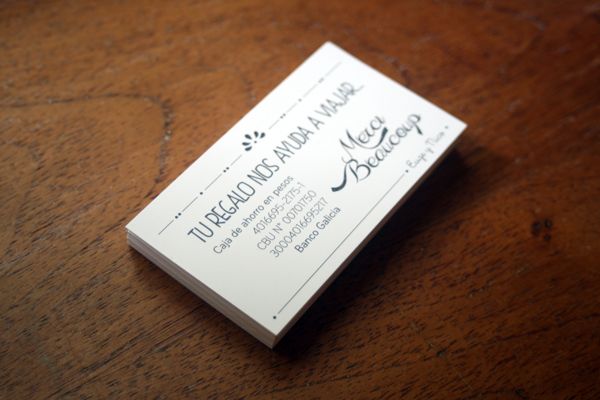 TU REGALO NOS AYUDA A VIAJAR...
Caja de ahorro en pesos
4016695-2175-1
CBU N° 00701750
30004016695217
Banco Galicia
Merci
Beaucoup